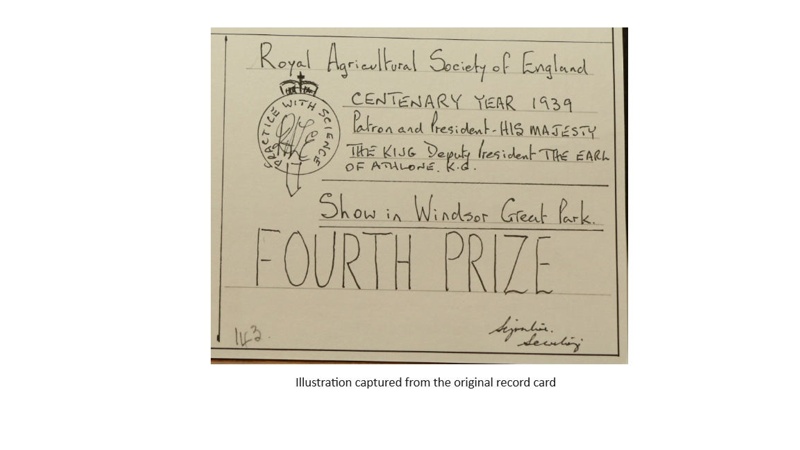 Royal Agricultural Society of England
PRACTICE WITH SCIENCE
CENTENARY YEAR 1939
Patron and President - HIS MAJESTY
THE KING Deputy President THE EARL
OF ATHLONE. K.G.
Show in Windsor Great Park.
FOURTH PRIZE
143.
Signature.
Secretary
Illustration captured from the original record card